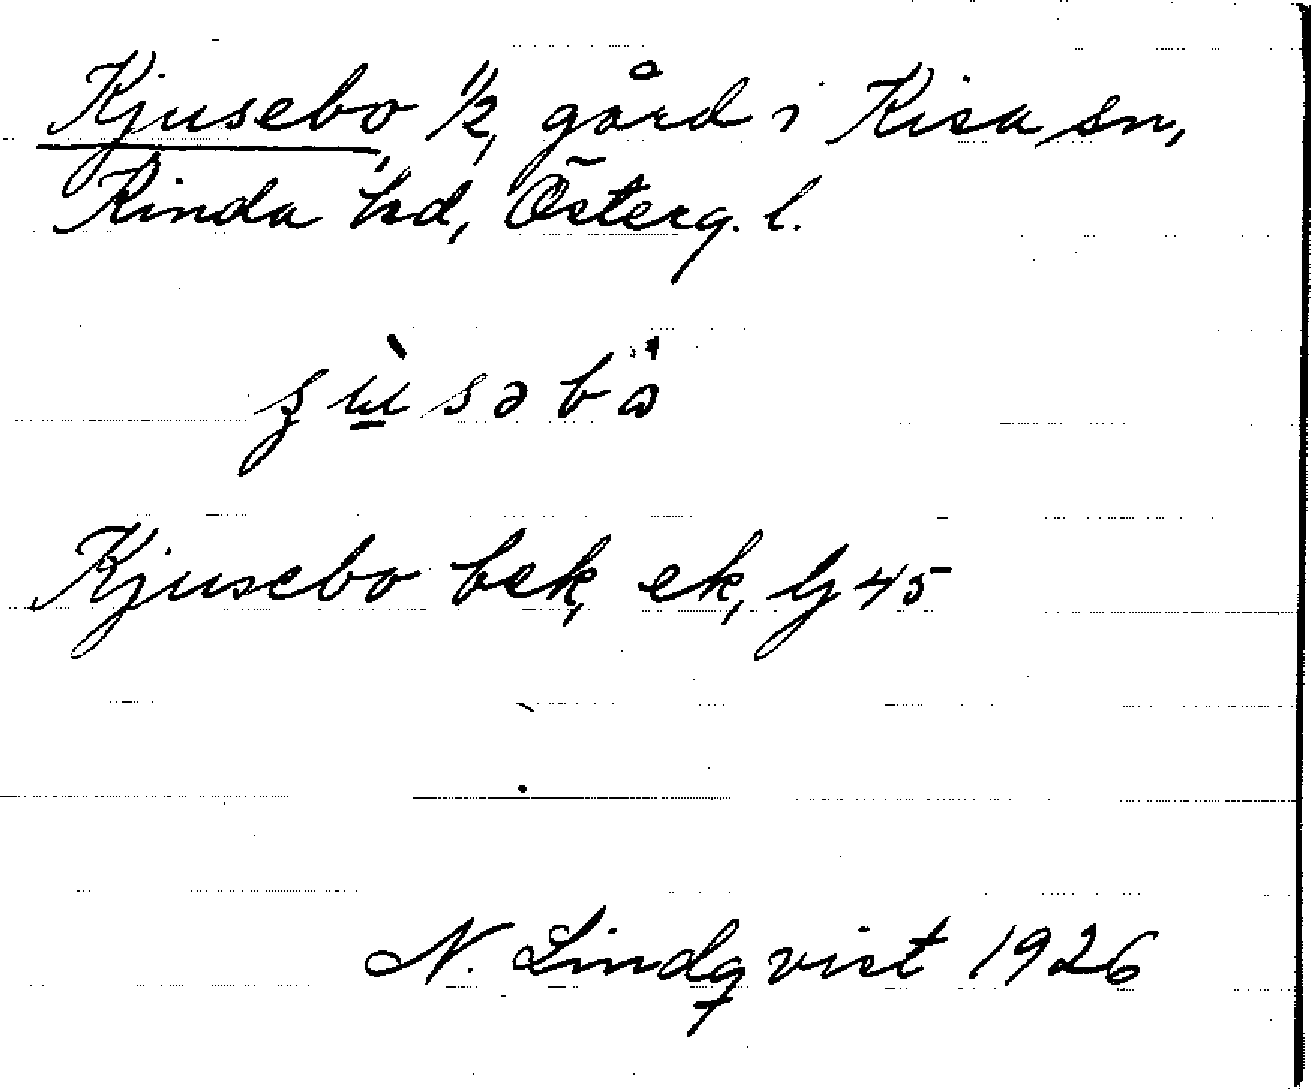 Kjusebo, 1/2, gård i Kisa sn,
Kinda hd, Österg. l.
ʂɯ̀səbö
Kjusebo bek, ek, Gj 45
N. Lindqvist 1926